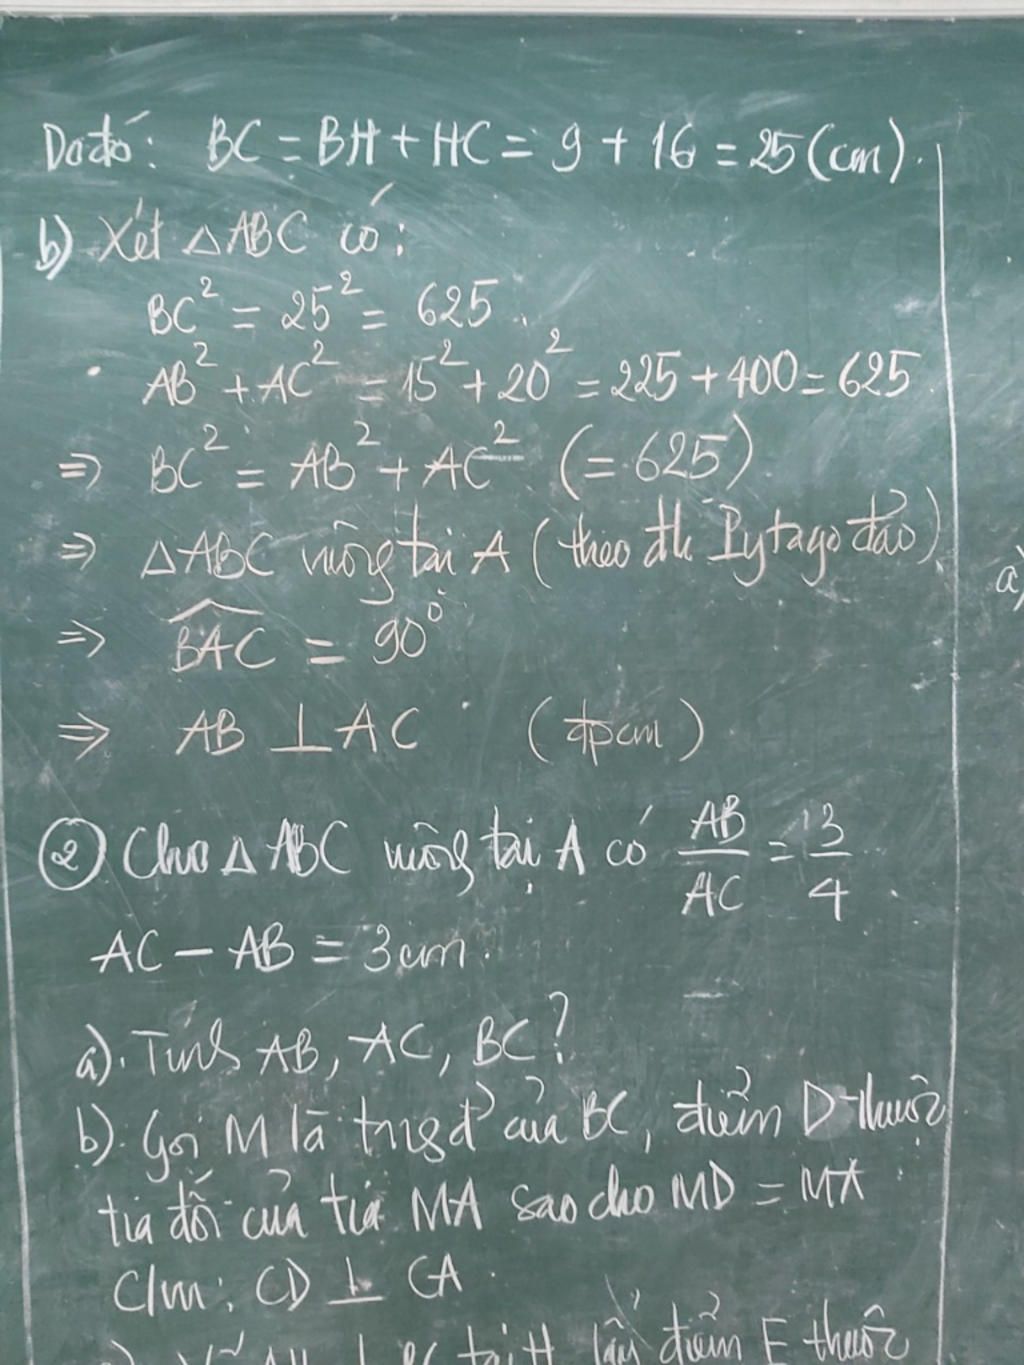 Do đó: BC = BH + HC = 9 + 16 = 25 (cm).
b) Xét △ABC có:
BC² = 25² = 625.
AB² + AC² = 15² + 20² = 225 + 400 = 625.
⇒ BC² = AB² + AC² (= 625)
⇒ △ABC vuông tại A (theo đlí Pytago đảo)
a)
⇒ \widehat{BAC} = 90°
⇒ AB ⊥ AC (đpcm)
② Cho △ABC vuông tại A có AB/AC = 3/4.
AC - AB = 3cm.
a). Tính AB, AC, BC?
b). Gọi M là trung đ' của BC, điểm D thuộc
tia đối của tia MA sao cho MD = MA
C/m: CD ⊥ CA.
Vẽ AH ⊥ BC tại H lấy điểm E thuộc